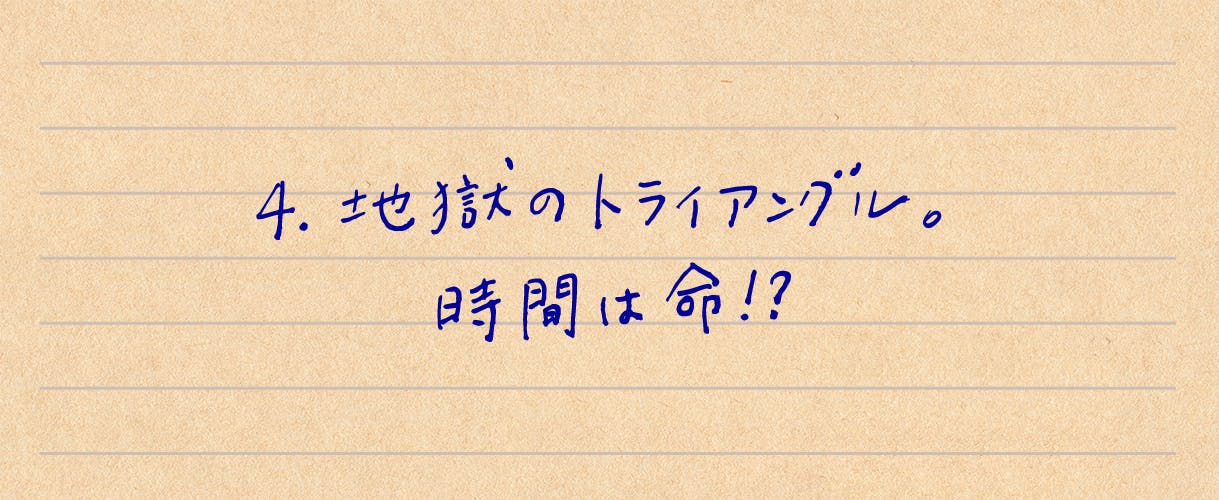 4. 地獄のトライアングル。
時間は命!?